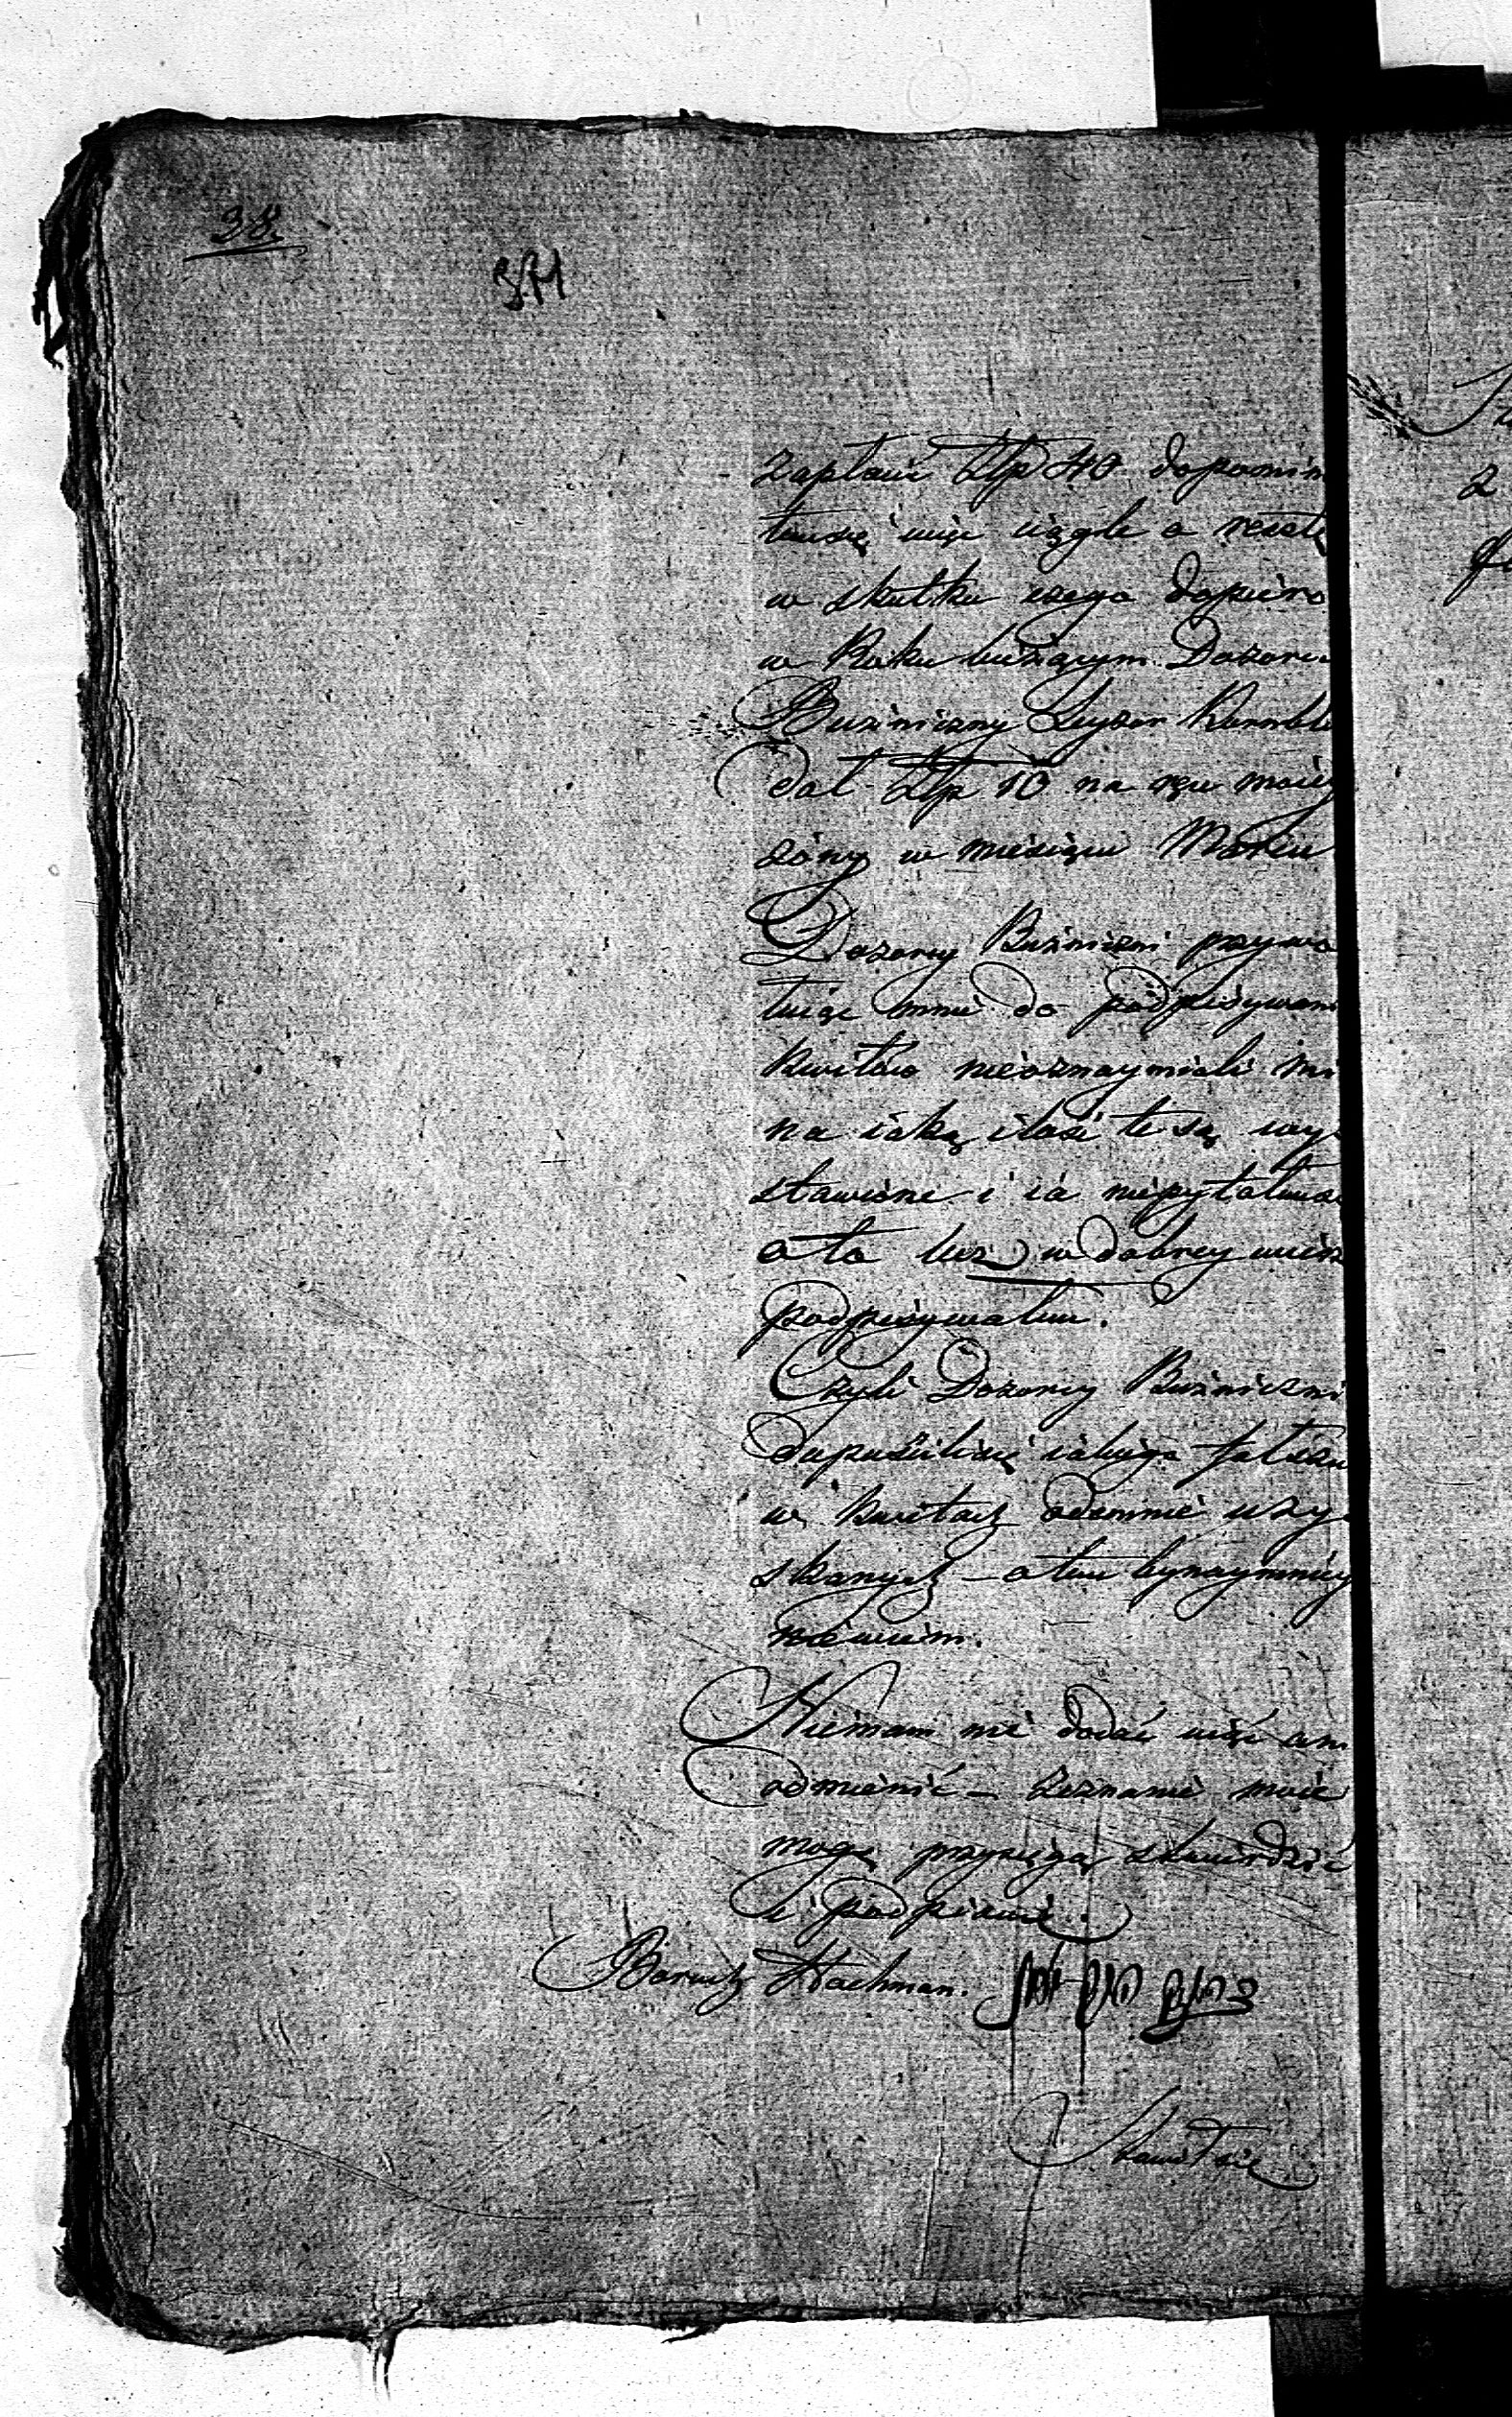 28.
371
zapłacić Złp 40 dopomin
łemsię więc ciągle o resztę
w skutku czego dopiero
w Roku bieżącym Dozorca
Bużniczny Leyzor
dał Złp 10 na ręce moiey
żony w miesiącu Marcu
Dozorcy Bużniczni przywo
łuiąc mnie do podpisywani
kwitów nieoznaymiali mi
na iaką ilość te są wy-
stawione i ia niepytałem się
o to lecz w dobrey wierze
podpisywałem.
Czyli Dozorcy Bużniczni
dopuścilisię iakiego fałszu
w kwitach odemnie uzy-
skanych – o tem bynaymniey
niewiem.
Niemam nic dodać więcé ani
odmienić – Zeznanie moie
mogę przysięgą stwierdzić
i podpisuie.
Boruch Nachman.
Stawił się